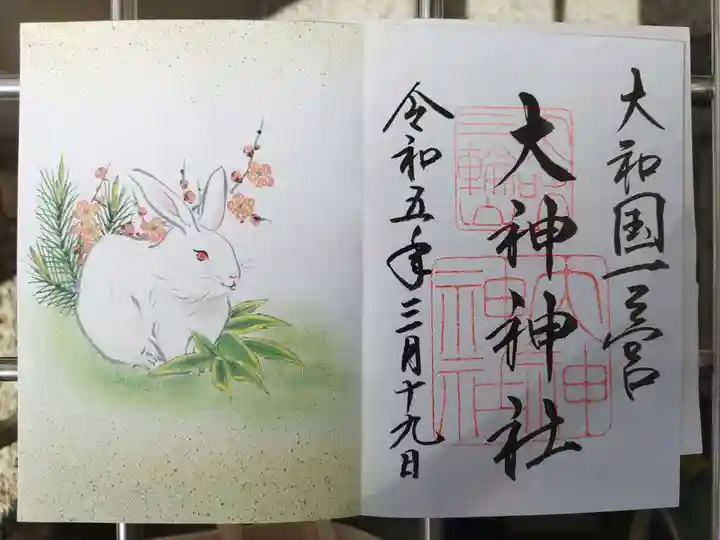 大和国一之宮
大神神社
令和五年三月十九日
三輪山
大神
神社